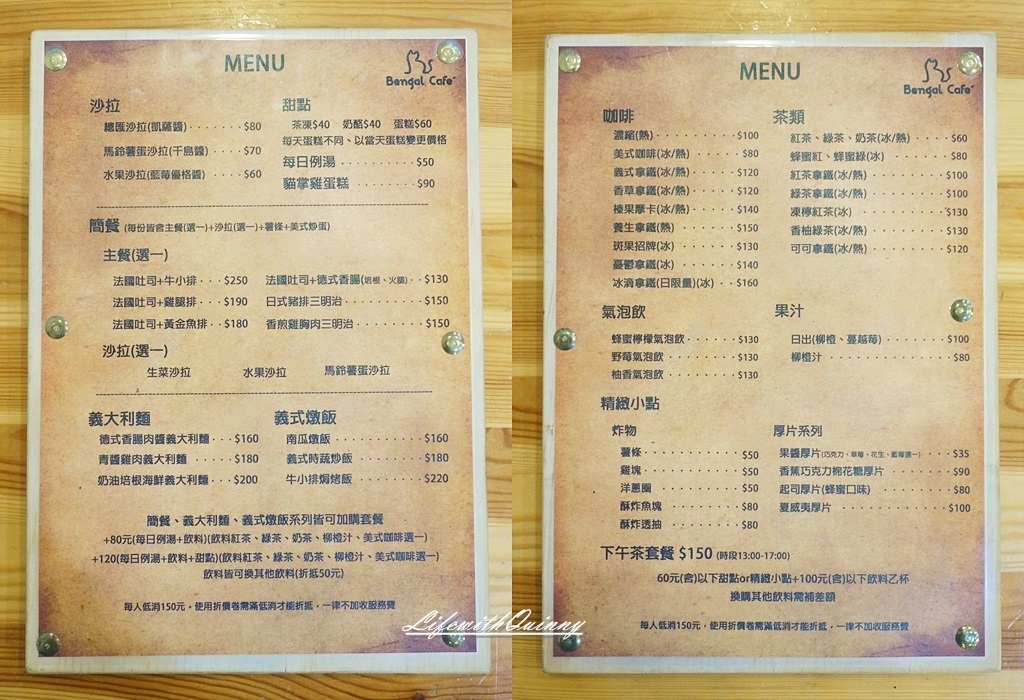 MENU
Bengal Cafe
沙拉
總匯沙拉(凱薩醬)·······$80
馬鈴薯蛋沙拉(千島醬)·····$70
水果沙拉(藍莓優格醬)·····$60
甜點
茶凍$40 奶酪$40 蛋糕$60
每天蛋糕不同、以當天蛋糕變更價格
每日例湯·········$50
貓掌雞蛋糕········$90
簡餐(每份皆含主餐(選一)+沙拉(選一)+薯條+美式炒蛋)
主餐(選一)
法國吐司+牛小排···$250
法國吐司+雞腿排···$190
法國吐司+黃金魚排··$180
法國吐司+德式香腸(培根、火腿)··$130
日式豬排三明治·········$150
香煎雞胸肉三明治········$150
沙拉(選一)
生菜沙拉 水果沙拉 馬鈴薯蛋沙拉
義大利麵
德式香腸肉醬義大利麵···$160
青醬雞肉義大利麵·····$180
奶油培根海鮮義大利麵···$200
義式燉飯
南瓜燉飯··········$160
義式時蔬炒飯········$180
牛小排焗烤飯········$220
簡餐、義大利麵、義式燉飯系列皆可加購套餐
+80元(每日例湯+飲料)(飲料紅茶、綠茶、奶茶、柳橙汁、美式咖啡選一)
+120(每日例湯+飲料+甜點)(飲料紅茶、綠茶、奶茶、柳橙汁、美式咖啡選一)
飲料皆可換其他飲料(折抵50元)
每人低消150元，使用折價卷需滿低消才能折抵，一律不加收服務費
LifewithQuinny
MENU
Bengal Cafe
咖啡
濃縮(熱)··········$100
美式咖啡(冰/熱)·······$80
義式拿鐵(冰/熱)·······$120
香草拿鐵(冰/熱)·······$120
榛果摩卡(冰/熱)·······$140
養生拿鐵(熱)········$150
斑果招牌(冰)········$130
憂鬱拿鐵(冰)········$140
冰滴拿鐵(日限量)(冰)···$160
茶類
紅茶、綠茶、奶茶(冰/熱)·····$60
蜂蜜紅、蜂蜜綠(冰)·······$80
紅茶拿鐵(冰/熱)········$100
綠茶拿鐵(冰/熱)········$100
凍檸紅茶(冰)·········$130
香柚綠茶(冰/熱)········$130
可可拿鐵(冰/熱)········$120
氣泡飲
蜂蜜檸檬氣泡飲·······$130
野莓氣泡飲·········$130
柚香氣泡飲·········$130
果汁
日出(柳橙、蔓越莓)·······$100
柳橙汁············$80
精緻小點
炸物
薯條············$50
雞塊············$50
洋蔥圈···········$50
酥炸魚塊··········$80
酥炸透抽··········$80
厚片系列
果醬厚片(巧克力、草莓、花生、藍莓選一)···$35
香蕉巧克力棉花糖厚片······$90
起司厚片(蜂蜜口味)·······$80
夏威夷厚片··········$100
下午茶套餐 $150 (時段13:00-17:00)
60元(含)以下甜點or精緻小點+100元(含)以下飲料乙杯
換購其他飲料需補差額
每人低消150元，使用折價卷需滿低消才能折抵，一律不加收服務費